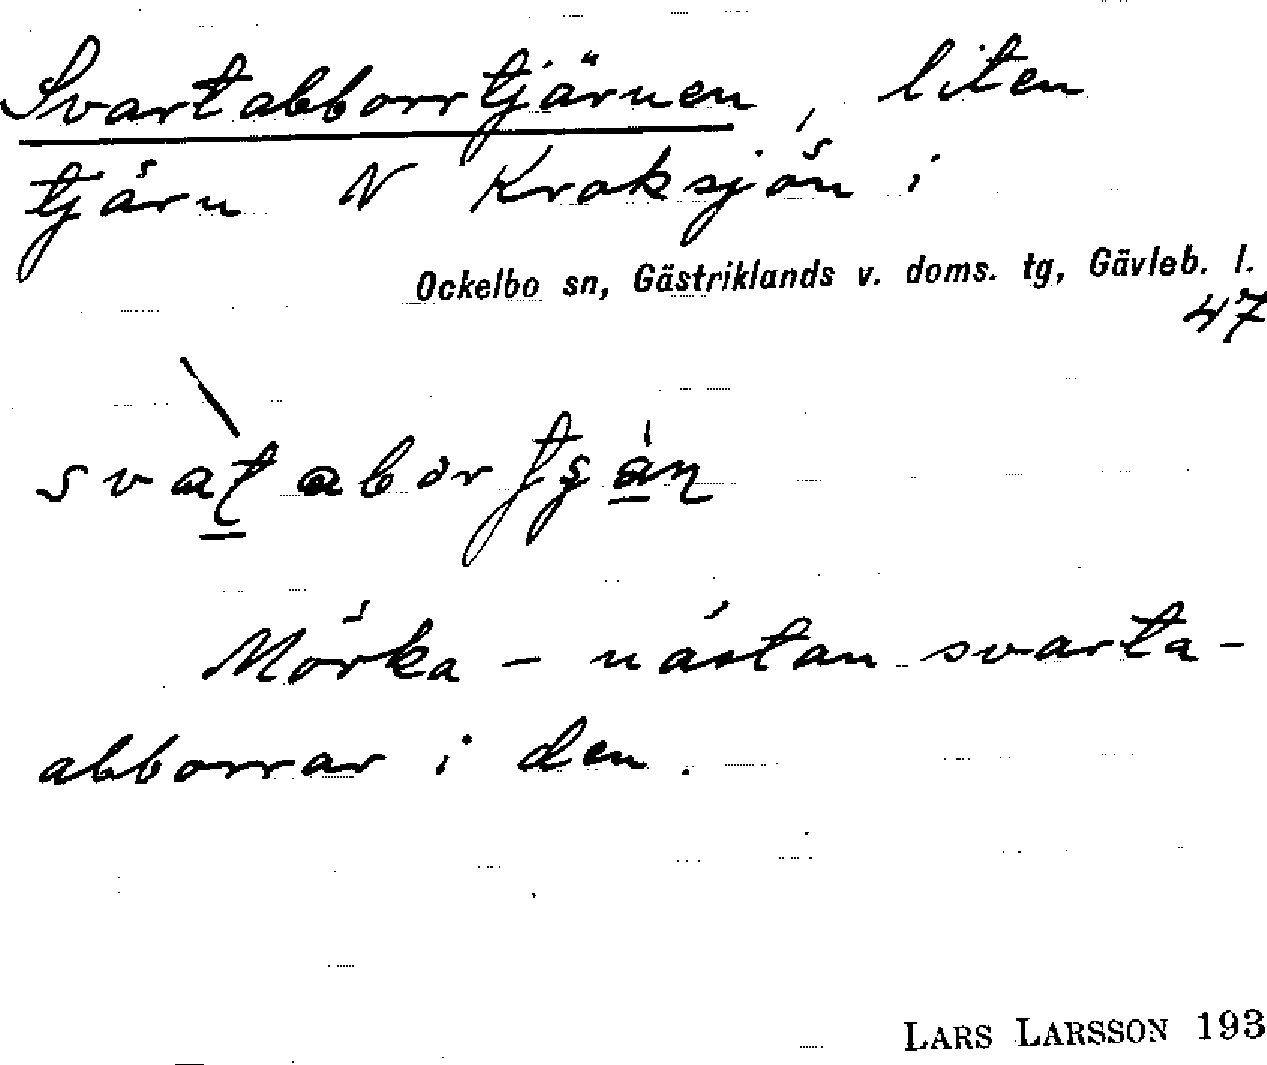 Svartabborrtjärnen, liten
tjärn N Kroksjön i
Ockelbo sn, Gästriklands v. doms. tg, Gävleb. l.
47
Mörka – nästan svarta –
abborrar i den.
LARS LARSSON 193